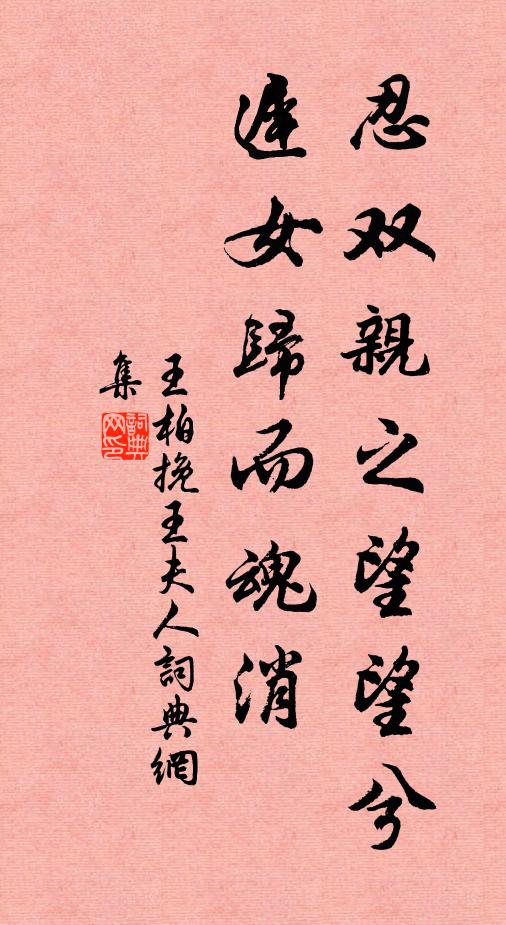 忍双親之望望兮
遲女歸而魂消
王柏挽王夫人詞典網
集
詞典網印